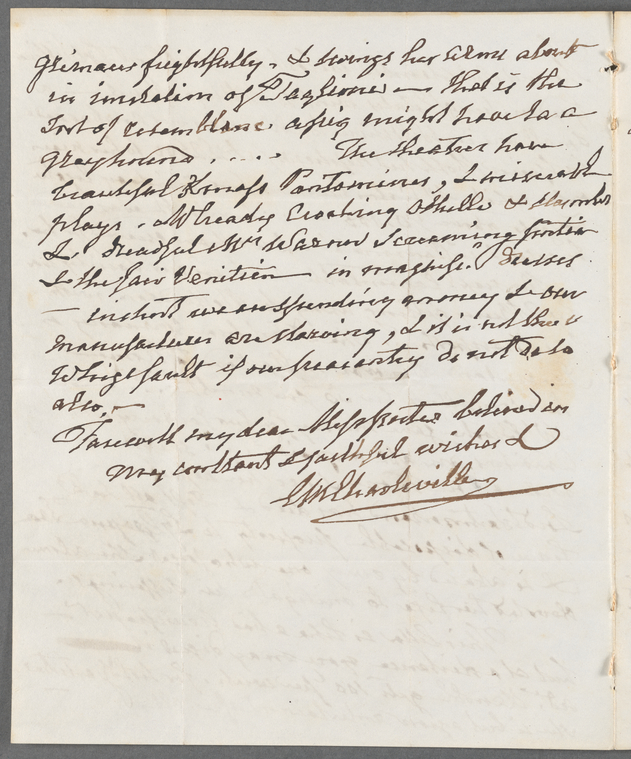 grimaces frightfully, & swings her arms about
in imitation of Taglioni — that is the
sort of resemblance a pig might have to a
greyhound. .... The theatres have
beautiful Xmass Pantomimes, & miserable
plays. McCready Croaking Othello &
& dreadful Mrs Warner Screaming Portia
& the fair Venitian in magnif.t Dresses
— in short we are spending money & our
manufacturers are starving, & it is not the
Whigs fault if our peasantry do not do so
also. —
Farewell my dear Miss Porter believe in
my constant & faithful wishes &
CM Charleville